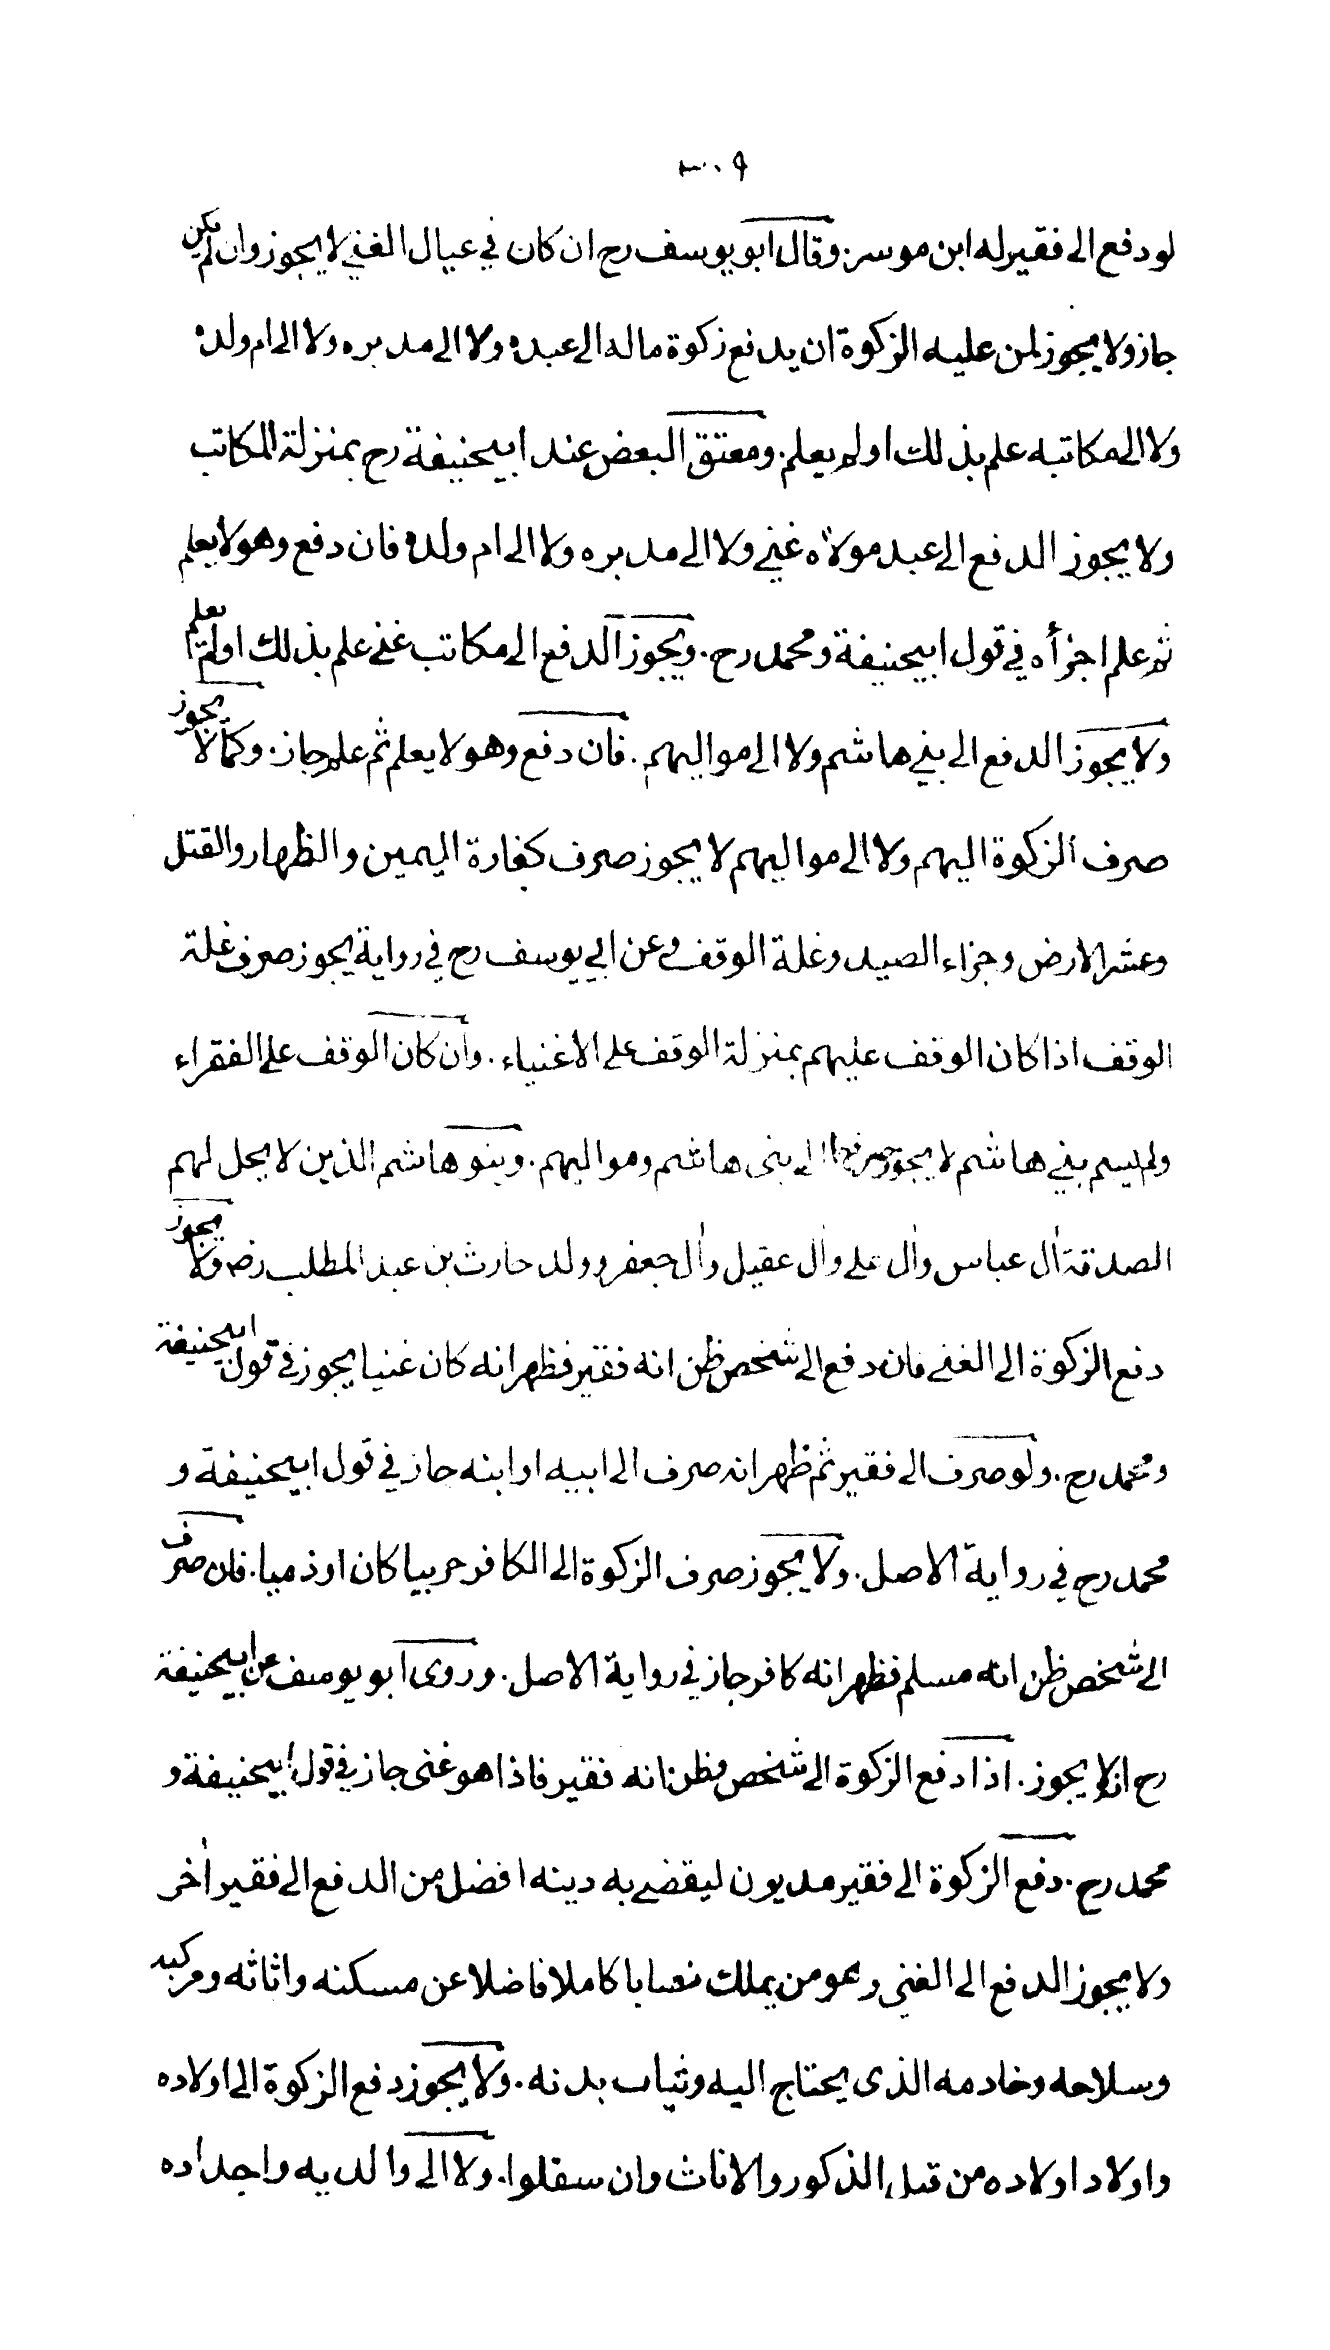 ٣٠٩
لو دفع الى فقير له ابن موسر. وقال ابو يوسف رح ان كان في عيال الغني لا يجوز وان لم يكن
جاز ولا يجوز لمن عليه الزكوة ان يدفع زكوة ماله الى عبده ولا الى مدبره ولا الى ام ولده
ولا الى مكاتبه علم بذلك او لم يعلم. ومعتق البعض عند ابيحنيفة رح بمنزلة المكاتب
ولا يجوز الدفع الى عبد مولاه غني ولا الى مدبره ولا الى ام ولده فان دفع وهو لا يعلم
ثم علم اجزأه في قول ابيحنيفة ومحمد رح. ويجوز الدفع الى مكاتب غني علم بذلك او لم يعلم
ولا يجوز الدفع الى بني هاشم ولا الى مواليهم. فان دفع وهو لا يعلم ثم علم جاز. وكما لا يجوز
صرف الزكوة اليهم ولا الى مواليهم لا يجوز صرف كفارة اليمين والظهار والقتل
وعشر الارض وجزاء الصيد وغلة الوقف وعن ابي يوسف رح في رواية يجوز صرف غلة
الوقف اذا كان الوقف عليهم بمنزلة الوقف على الاغنياء. وان كان الوقف على الفقراء
ولم يسم بني هاشم لا يجوز صرفها الى بنى هاشم ومواليهم. وبنو هاشم الذين لا يحل لهم
الصدقة اٰل عباس واٰل علي واٰل عقيل واٰل جعفر وولد حارث بن عبد المطلب رض ولا يجوز
دفع الزكوة الى الغني فان دفع الى شخص ظن انه فقير فظهر انه كان غنيا يجوز في قول ابيحنيفة
ومحمد رح. ولو صرف الى فقير ثم ظهر انه صرف الى ابيه او ابنه جاز في قول ابيحنيفة و
محمد رح في رواية الاصل. ولا يجوز صرف الزكوة الى الكافر حربيا كان او ذميا. فان صرف
الى شخص ظن انه مسلم فظهر انه كافر جاز في رواية الاصل. وروى ابو يوسف عن ابيحنيفة
رح انه لا يجوز. اذا دفع الزكوة الى شخص وظن انه فقير فاذا هو غنى جاز في قول ابيحنيفة و
محمد رح. دفع الزكوة الى فقير مديون ليقضي به دينه افضل من الدفع الى فقير اٰخر
ولا يجوز الدفع الى الغني وهو من يملك نصابا كاملا فاضلا عن مسكنه واثاثه ومركبه
وسلاحه وخادمه الذى يحتاج اليه وثياب بدنه. ولا يجوز دفع الزكوة الى اولاده
واولاد اولاده من قبل الذكور والاناث وان سفلوا. ولا الى والديه واجداده